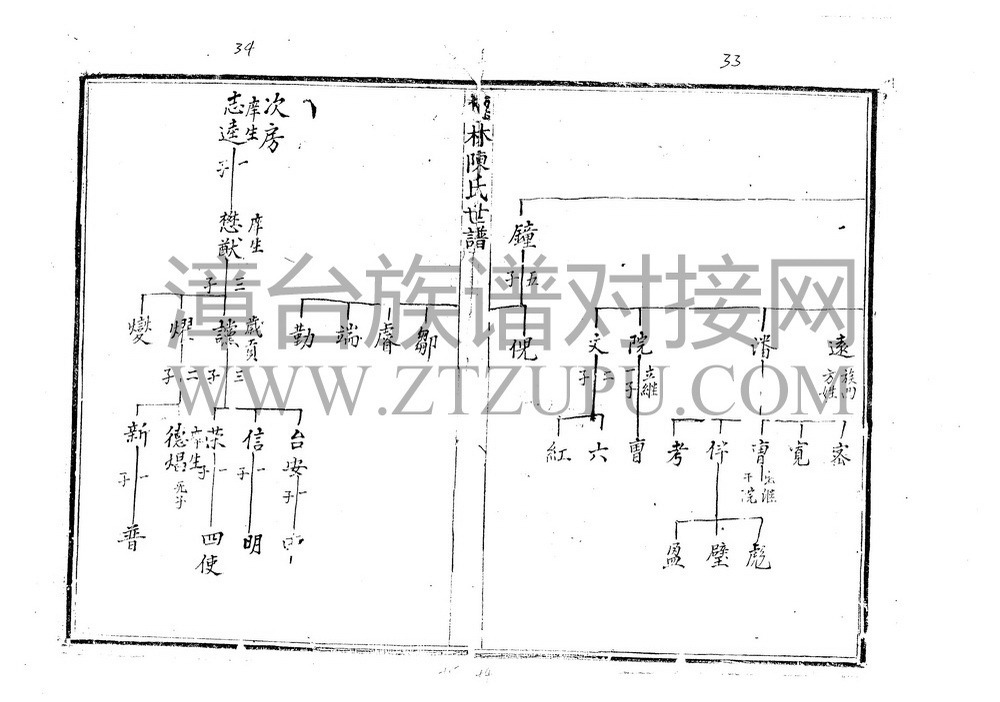 34
33
林陳氏世譜
鐘
五子
倪
文
二子
院
一子
立繼
潘
遠
方姓
紅
六
曺
考
伴
曺
寬
出繼于院
盈
璧
彪
次房
庠生
志遠
一子
庠生
懋猷
三子
鄒
睿
端
勤
歲貢
讜
三子
熠
二子
燮
台安
一子
信
一子
庠生
一子
德焻
無子
新
一子
明
四使
普
漳台族谱对接网
WWW.ZTZUPU.COM